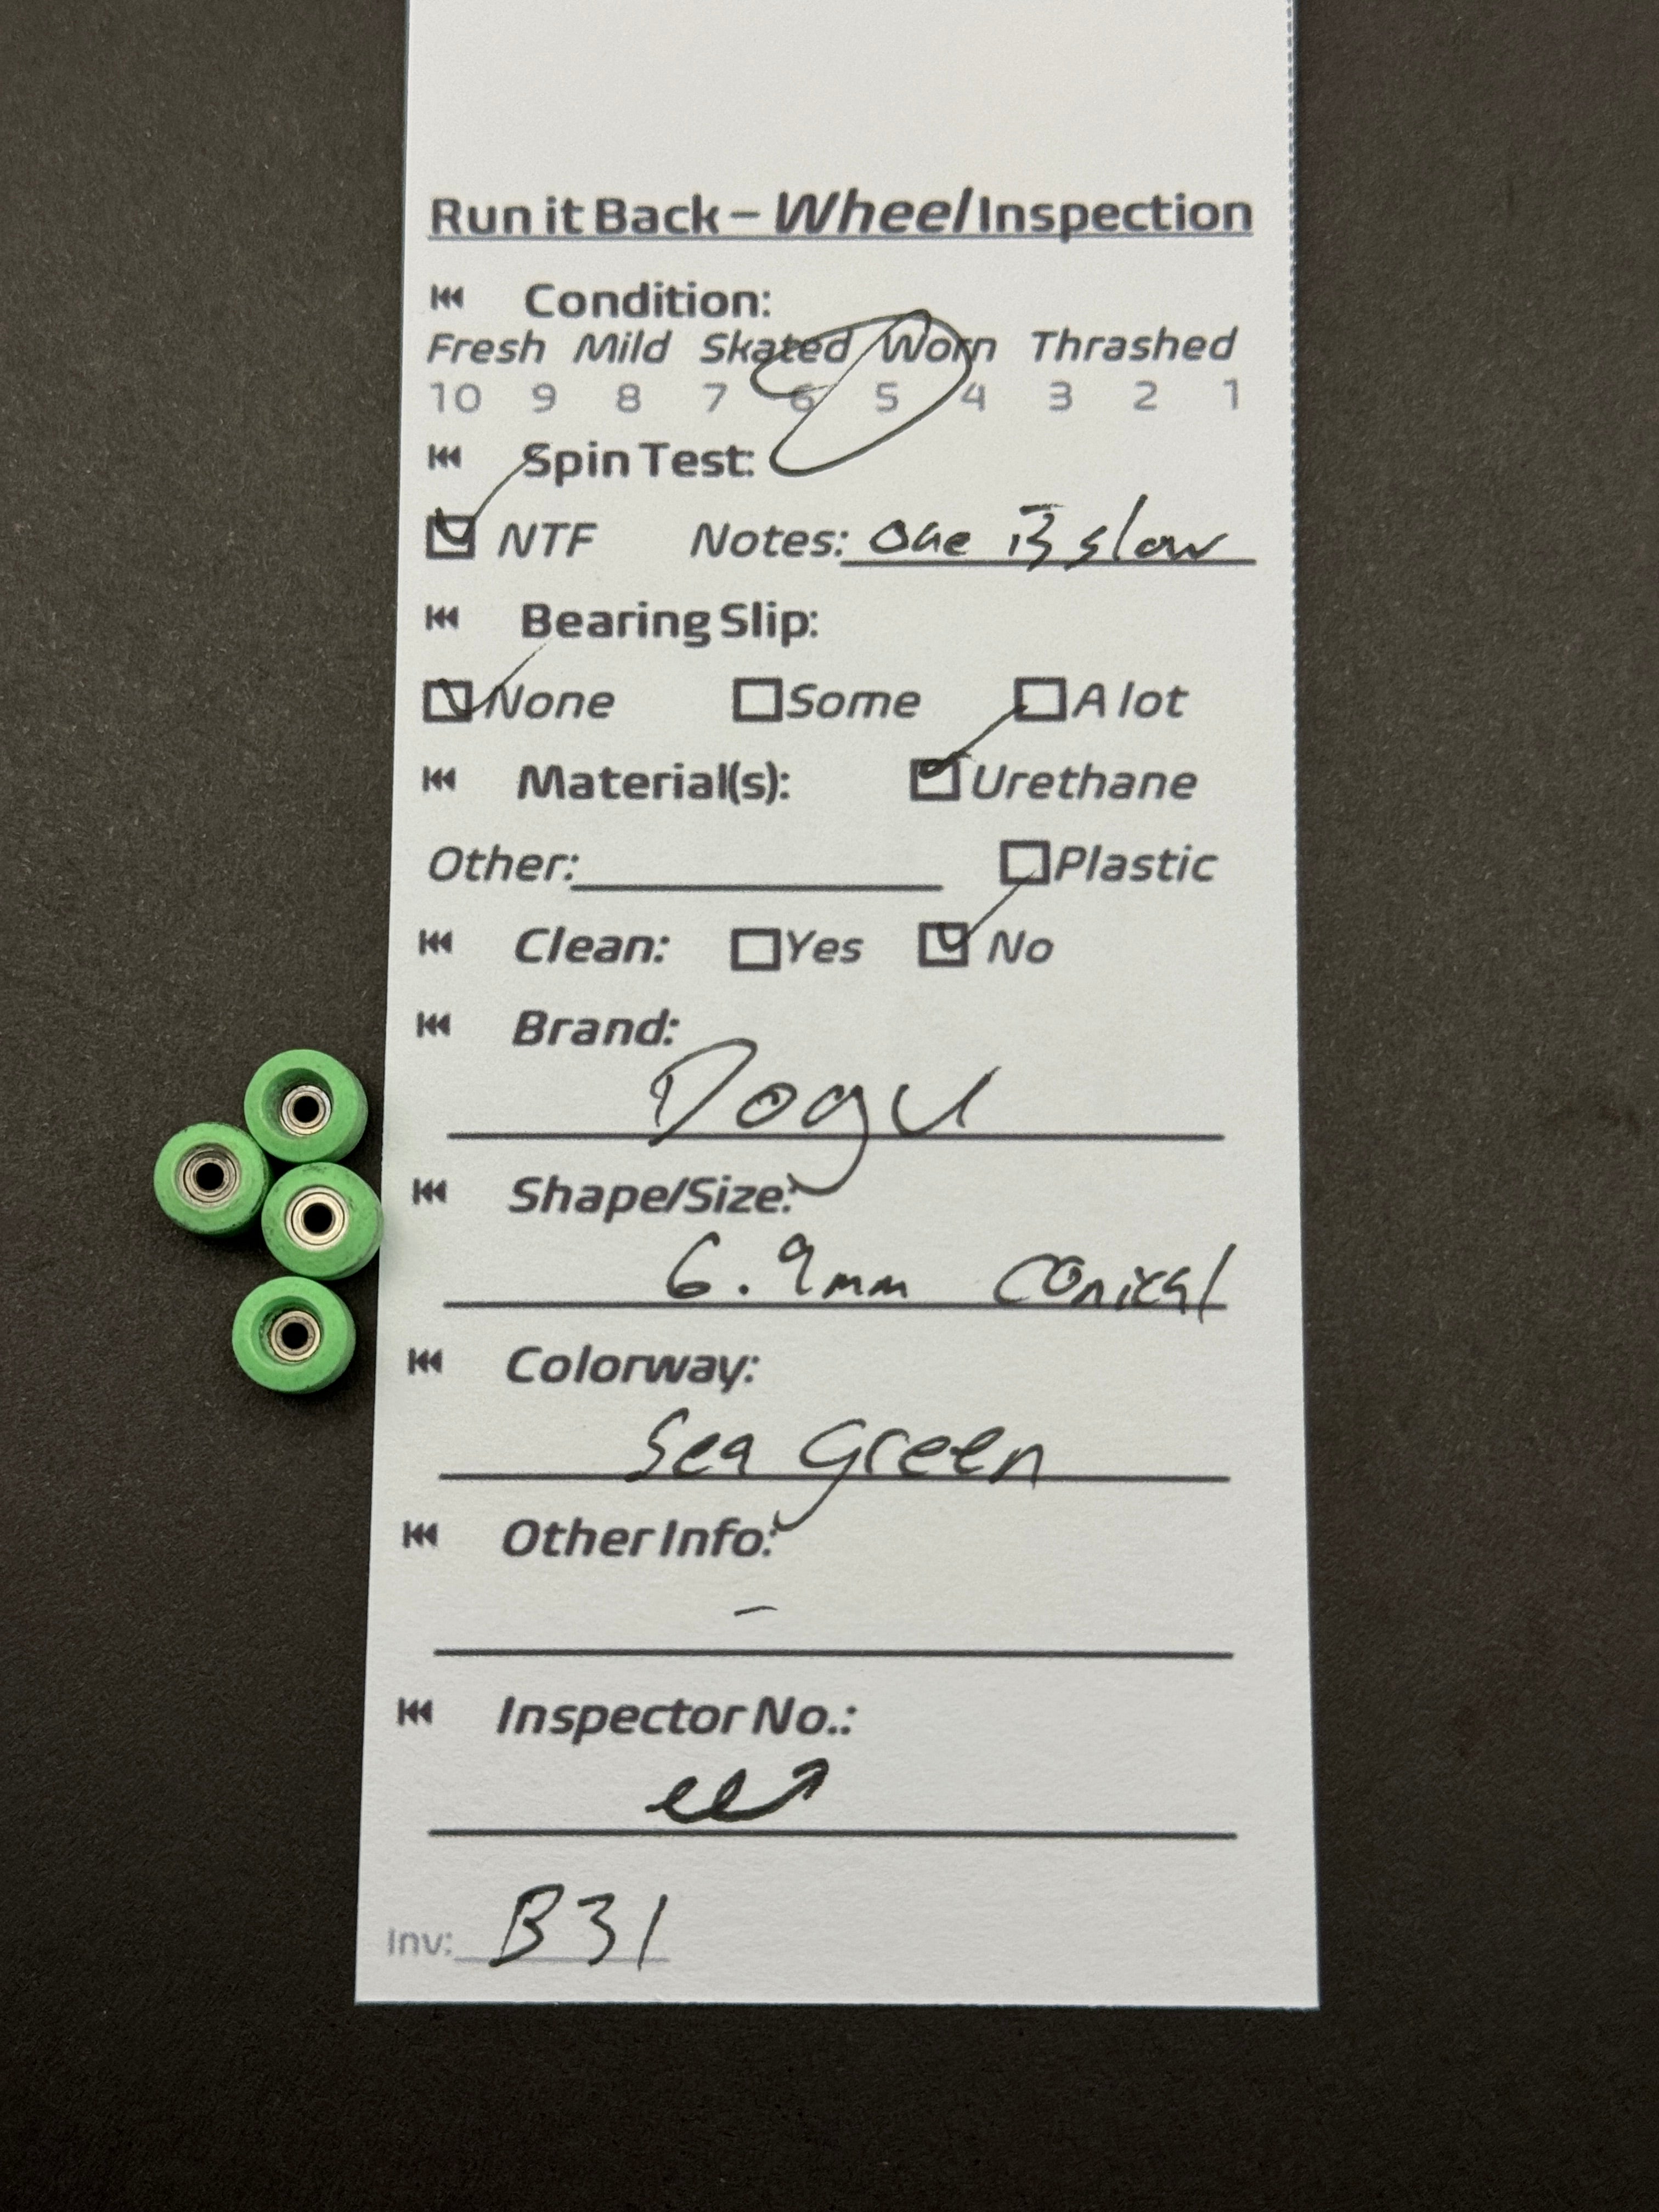 Run it Back – Wheel Inspection
Condition:
Fresh Mild Skated Worn Thrashed
10 9 8 7 6 5 4 3 2 1
Spin Test:
NTF Notes: One is slow
Bearing Slip:
None Some A lot
Material(s): Urethane
Other: Plastic
Clean: Yes No
Brand:
Dogu
Shape/Size:
6.9mm Conical
Colorway:
Sea Green
Other Info:
–
Inspector No.:
Inv: B31